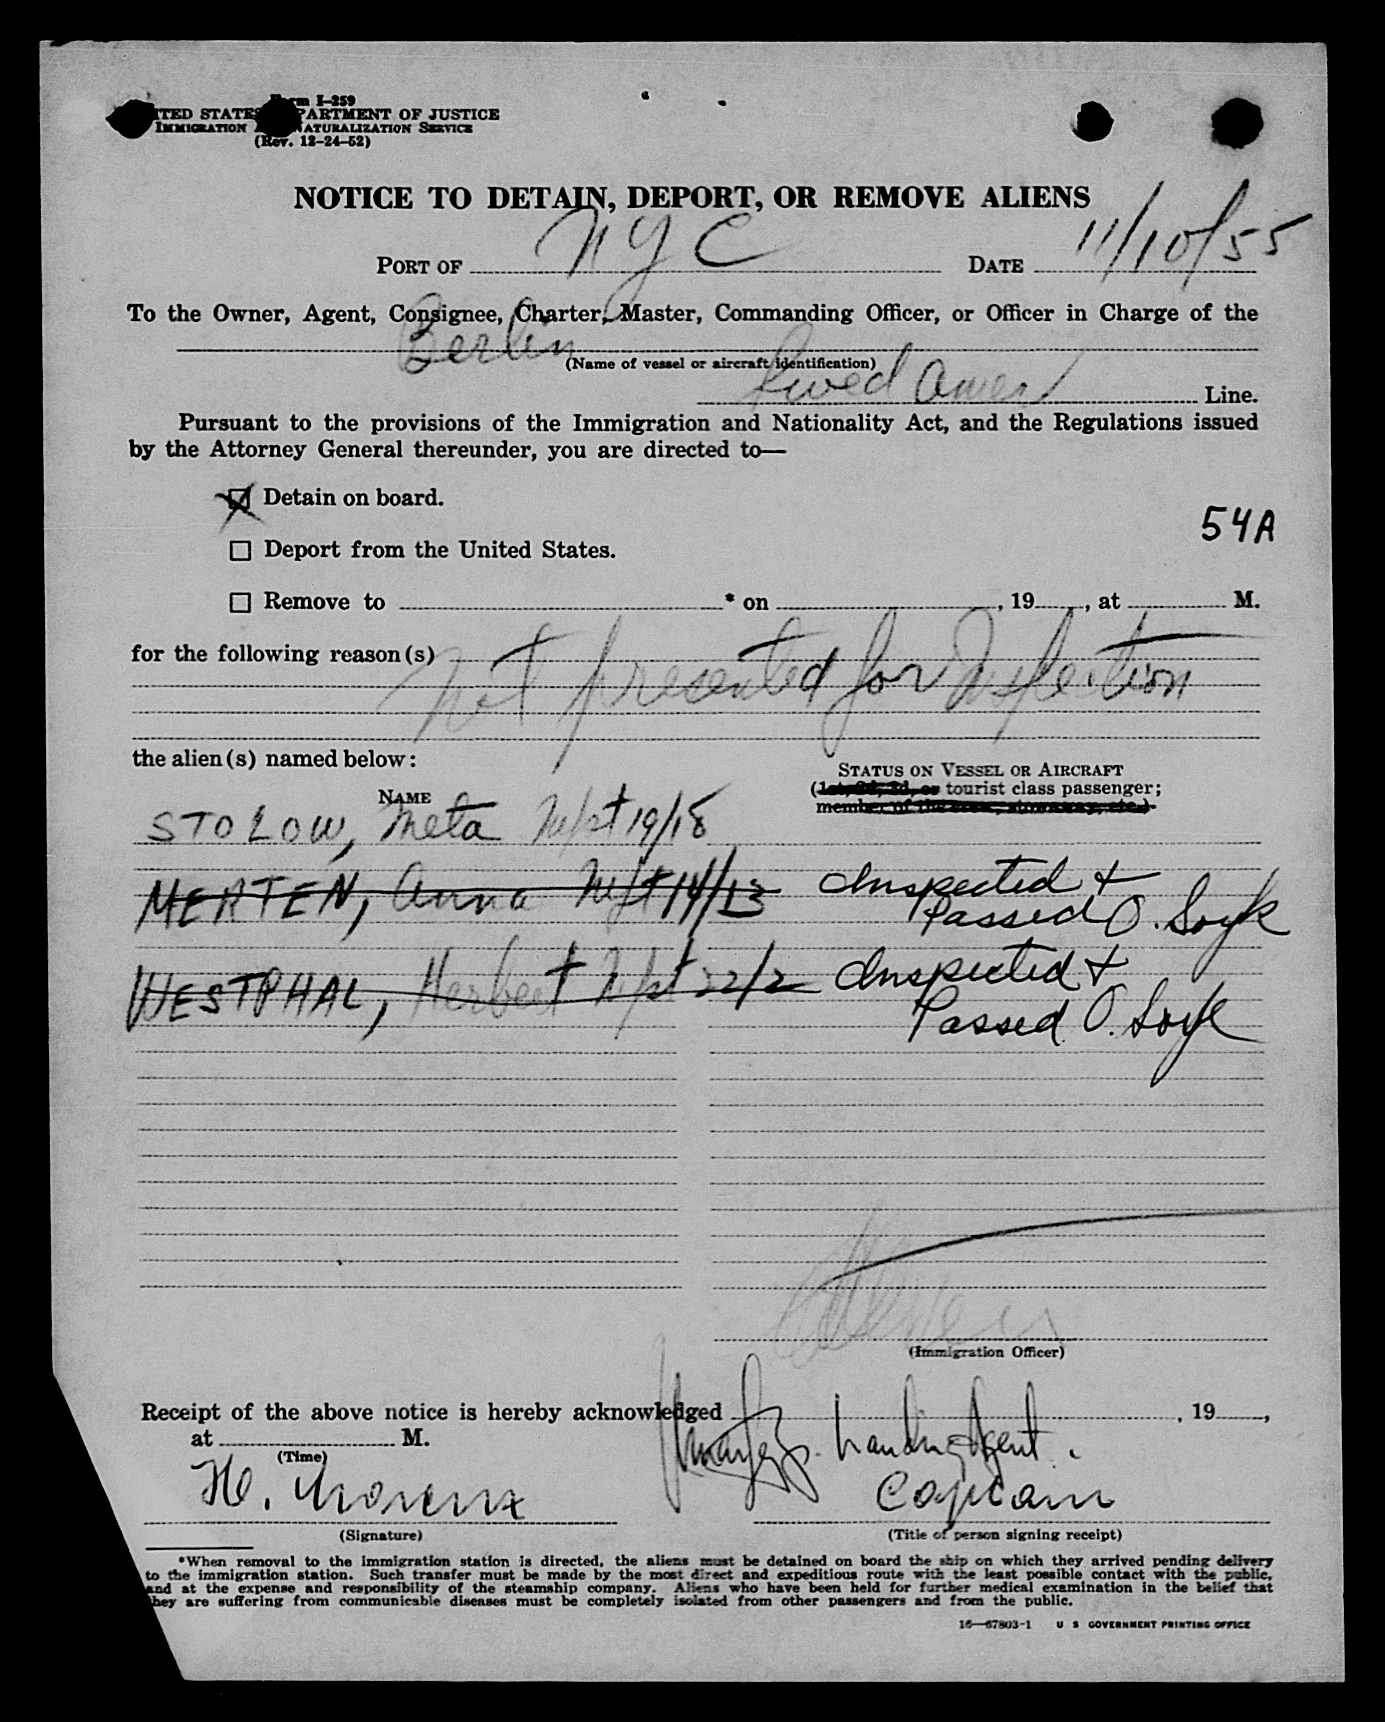 Form I-259
UNITED STATES DEPARTMENT OF JUSTICE
IMMIGRATION AND NATURALIZATION SERVICE
(Rev. 12-24-52)
NOTICE TO DETAIN, DEPORT, OR REMOVE ALIENS
PORT OF NYC DATE 11/10/55
To the Owner, Agent, Consignee, Charter, Master, Commanding Officer, or Officer in Charge of the
Berlin
(Name of vessel or aircraft identification)
Swed Amer Line.
Pursuant to the provisions of the Immigration and Nationality Act, and the Regulations issued
by the Attorney General thereunder, you are directed to—
Detain on board.
54A
Deport from the United States.
Remove to * on , 19 , at M.
for the following reason(s) Not presented for Inspection
the alien(s) named below:
STATUS ON VESSEL OR AIRCRAFT
(1st, 2d, 3d, or tourist class passenger;
member of the crew, stowaway, etc.)
NAME
STOLOW, Meta 19/18
MERTEN, Anna 14/13 Inspected +
Passed O. Soyk
WESTPHAL, Herbert 22/2 Inspected +
Passed O. Soyk
(Immigration Officer)
Receipt of the above notice is hereby acknowledged , 19 ,
at M.
(Time)
Landing Agent.
H. Captain
(Signature) (Title of person signing receipt)
*When removal to the immigration station is directed, the aliens must be detained on board the ship on which they arrived pending delivery
to the immigration station. Such transfer must be made by the most direct and expeditious route with the least possible contact with the public,
and at the expense and responsibility of the steamship company. Aliens who have been held for further medical examination in the belief that
they are suffering from communicable diseases must be completely isolated from other passengers and from the public.
16—67803-1 U S GOVERNMENT PRINTING OFFICE